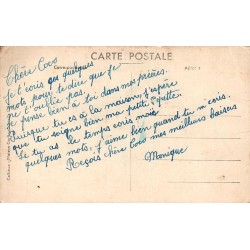 CARTE POSTALE
Chère Coco
je t'écris ces quelques
mots pour te dire que je
t'oublie pas
je pense bien à toi dans mes prières.
Puisque tu es à la maison, j'espère
que tu soigne bien ma petite
Si tu as le temps écris moi
quelques mots. J'aime bien quand tu m'écris.
Reçois chère Coco mes meilleurs baisers
Monique